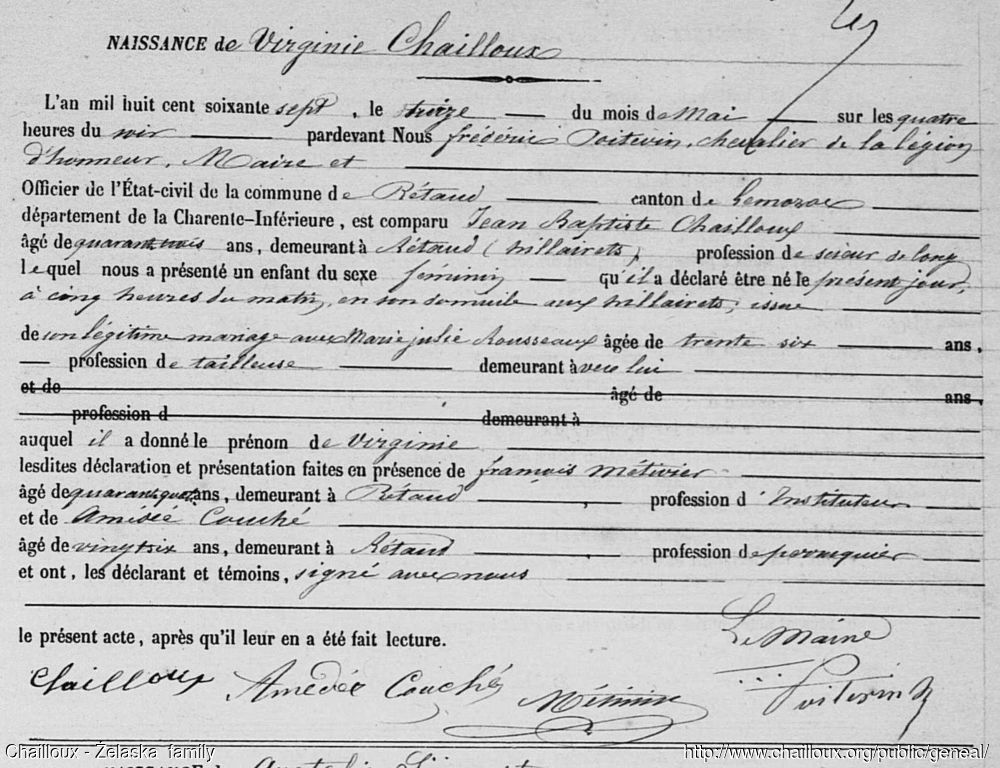 NAISSANCE de Virginie Chailloux
L'an mil huit cent soixante sept, le treize du mois de Mai sur les quatre
heures du soir pardevant Nous frédéric Poitevin, chevalier de la légion
d'honneur, Maire et
Officier de l'État-civil de la commune de Rétaud canton de Gemozac
département de la Charente-Inférieure, est comparu Jean Baptiste Chailloux
âgé de quarante trois ans, demeurant à Rétaud (hillairets), profession de scieur de long
lequel nous a présenté un enfant du sexe feminin qu'il a déclaré être né le présent jour,
à cinq heures du matin, en son domicile aux hillairets; issue
de son légitime mariage avec Marie julie Rousseaux âgée de trente six ans,
profession de tailleuse demeurant à avec lui
et de âgé de ans,
profession d demeurant à
auquel il a donné le prénom de Virginie
lesdites déclaration et présentation faites en présence de francois Métivier
âgé de ans, demeurant à Rétaud, profession d'Instituteur
et de Amédée Couché
âgé de vingt six ans, demeurant à Rétaud, profession de perruquier
et ont, les déclarant et témoins, signé avec nous
le présent acte, après qu'il leur en a été fait lecture.
Le Maire
Chailloux Amédée Couché Métivier Poitevin
Chailloux - Żelaska family http://www.chailloux.org/public/geneal/
NAISSANCE de